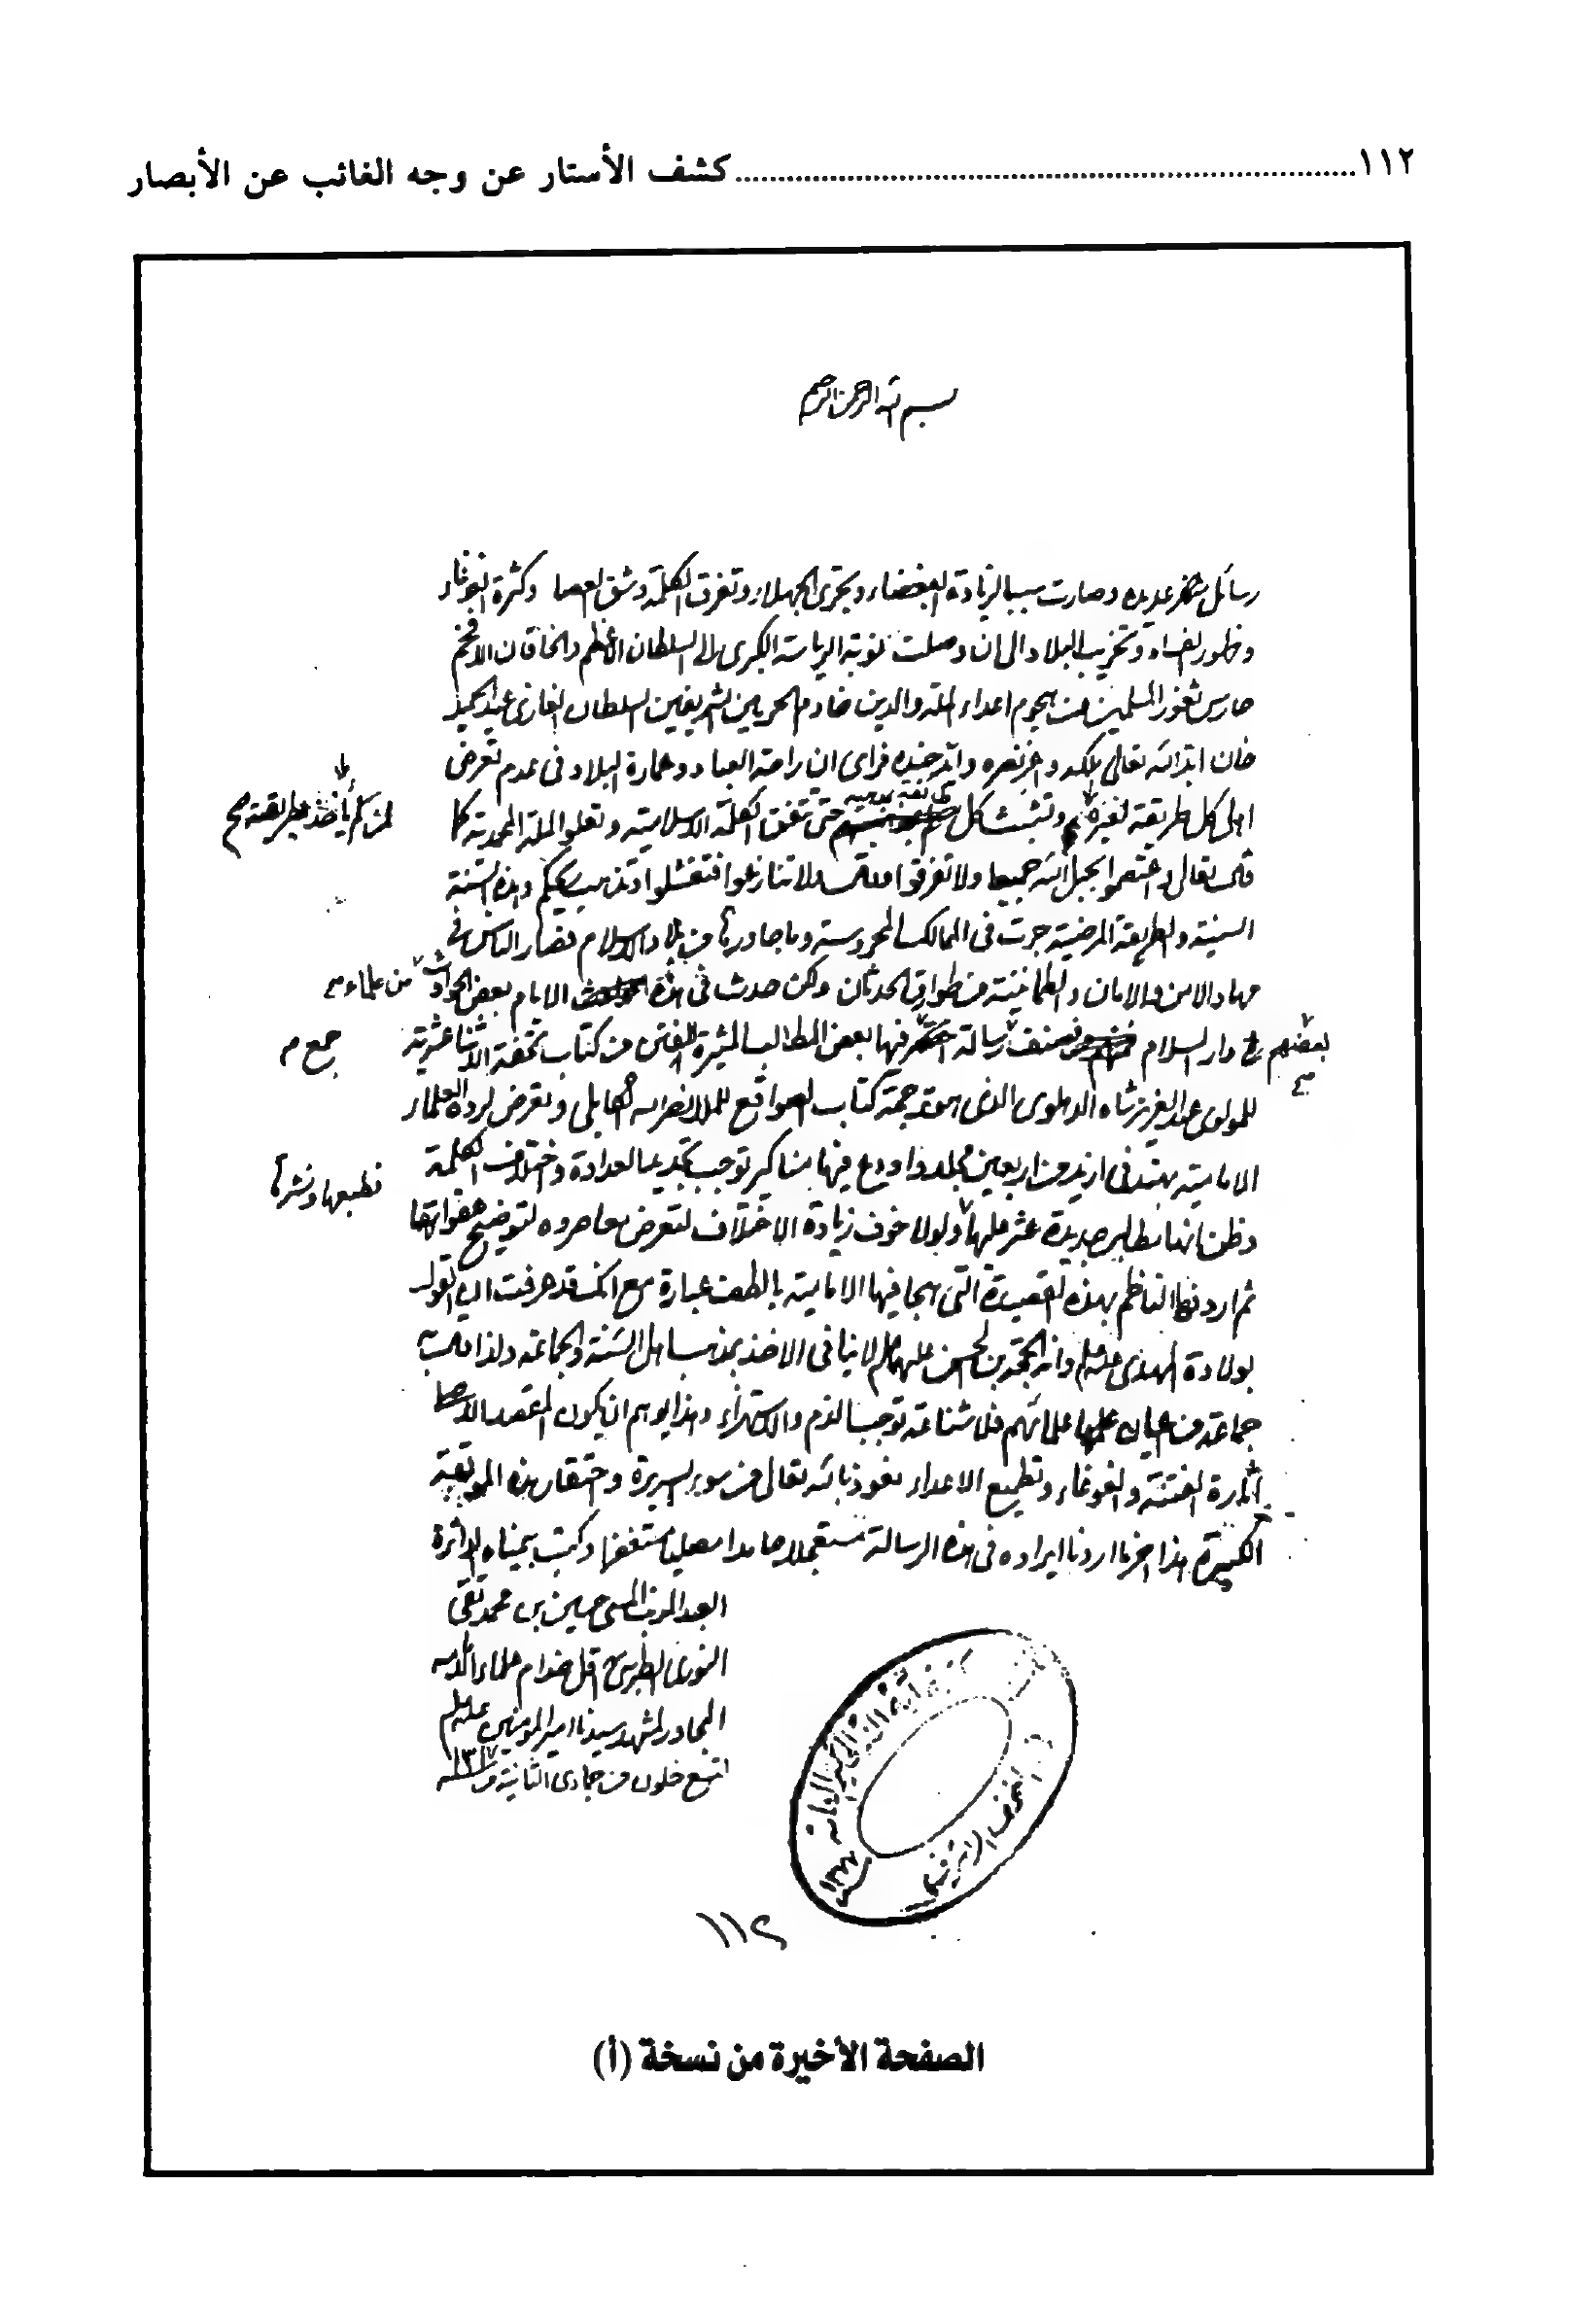 ١١٢ ........ كشف الأستار عن وجه الغائب عن الأبصار
بسم الله الرحمن الرحيم
رسائل عديدة وصارت سببا لزيادة البغضاء وتجرى الجهلاء وتفرق الكلمة وشق العصا وكثرة الغوغاء
وظهور الفساد وتخريب البلاد الى ان وصلت نوبة الرياسة الكبرى الى السلطان الاعظم والخاقان الافخم
حارس ثغور المسلمين من هجوم اعداء الملة والدين خادم الحرمين الشريفين السلطان الغازى عبد الحميد
خان ايد الله تعالى ملكه واعز نصره وايد جنده فراى ان راحة العباد وعمارة البلاد فى عدم تعرض
اهل كل طريقة لغيرهم وتثبت كل حتى تتفق الكلمة الاسلامية وتعلو الملة المحمدية كما
قال تعالى واعتصموا بحبل الله جميعا ولا تفرقوا وقال ولا تنازعوا فتفشلوا وتذهب ريحكم وهذه السنة
السنية والطريقة المرضية جرت فى الممالك المحروسة وما جاورها من بلاد الاسلام فصار الناس فى
مهاد الامن والامان والطمانينة من طوارق الحدثان ولكن حدث فى هذه الايام بعض الحوادث من علماء
بعضهم
دار السلام فصنف رسالة فيها بعض المطالب المثيرة للفتن من كتاب تحفة الاثنا عشرية
جمع
للمولوى عبد العزيز شاه الدهلوى الذى هو ترجمة كتاب الصواقع للملا نصر الله الكابلى وتعرض لرده العلماء
الامامية بهند فى ازيد من اربعين مجلدا واودع فيها مناكير توجب تجديد العداوة واختلاف الكلمة
فطبعها ونشرها
وظن انها مطالب جديدة عثر عليها ولولا خوف زيادة الاختلاف لتعرض معاصروه لتوضيح هفواتها
ثم اردفها الناظم بهذه القصيدة التى هجا فيها الامامية بالطف عبارة مع انك قد عرفت ان القول
بولادة المهدى وانه الحجة بن الحسن لا ينافى الاخذ بمذهب اهل السنة والجماعة ولذا قال به
جماعة من اعيان علمائهم فلا شناعة توجب الذم والاستهزاء وهذا يوهم ان يكون المقصد الاصلى
اثارة الفتنة والغوغاء وتطميع الاعداء نعوذ بالله تعالى من سوء السريرة واحتقار هذه الموبقة
الكبيرة هذا اخر ما اردنا ايراده فى هذه الرسالة مستعجلا حامدا مصليا مستغفرا وكتب بيمناه الداثرة
العبد المذنب المسىء حسين بن محمد تقى
النورى الطبرسى اقل خدام علماء
المجاور لمشهد سيدنا امير المومنين
خلون من جمادى الثانية ١٣١٧
١١٢
الصفحة الأخيرة من نسخة (أ)